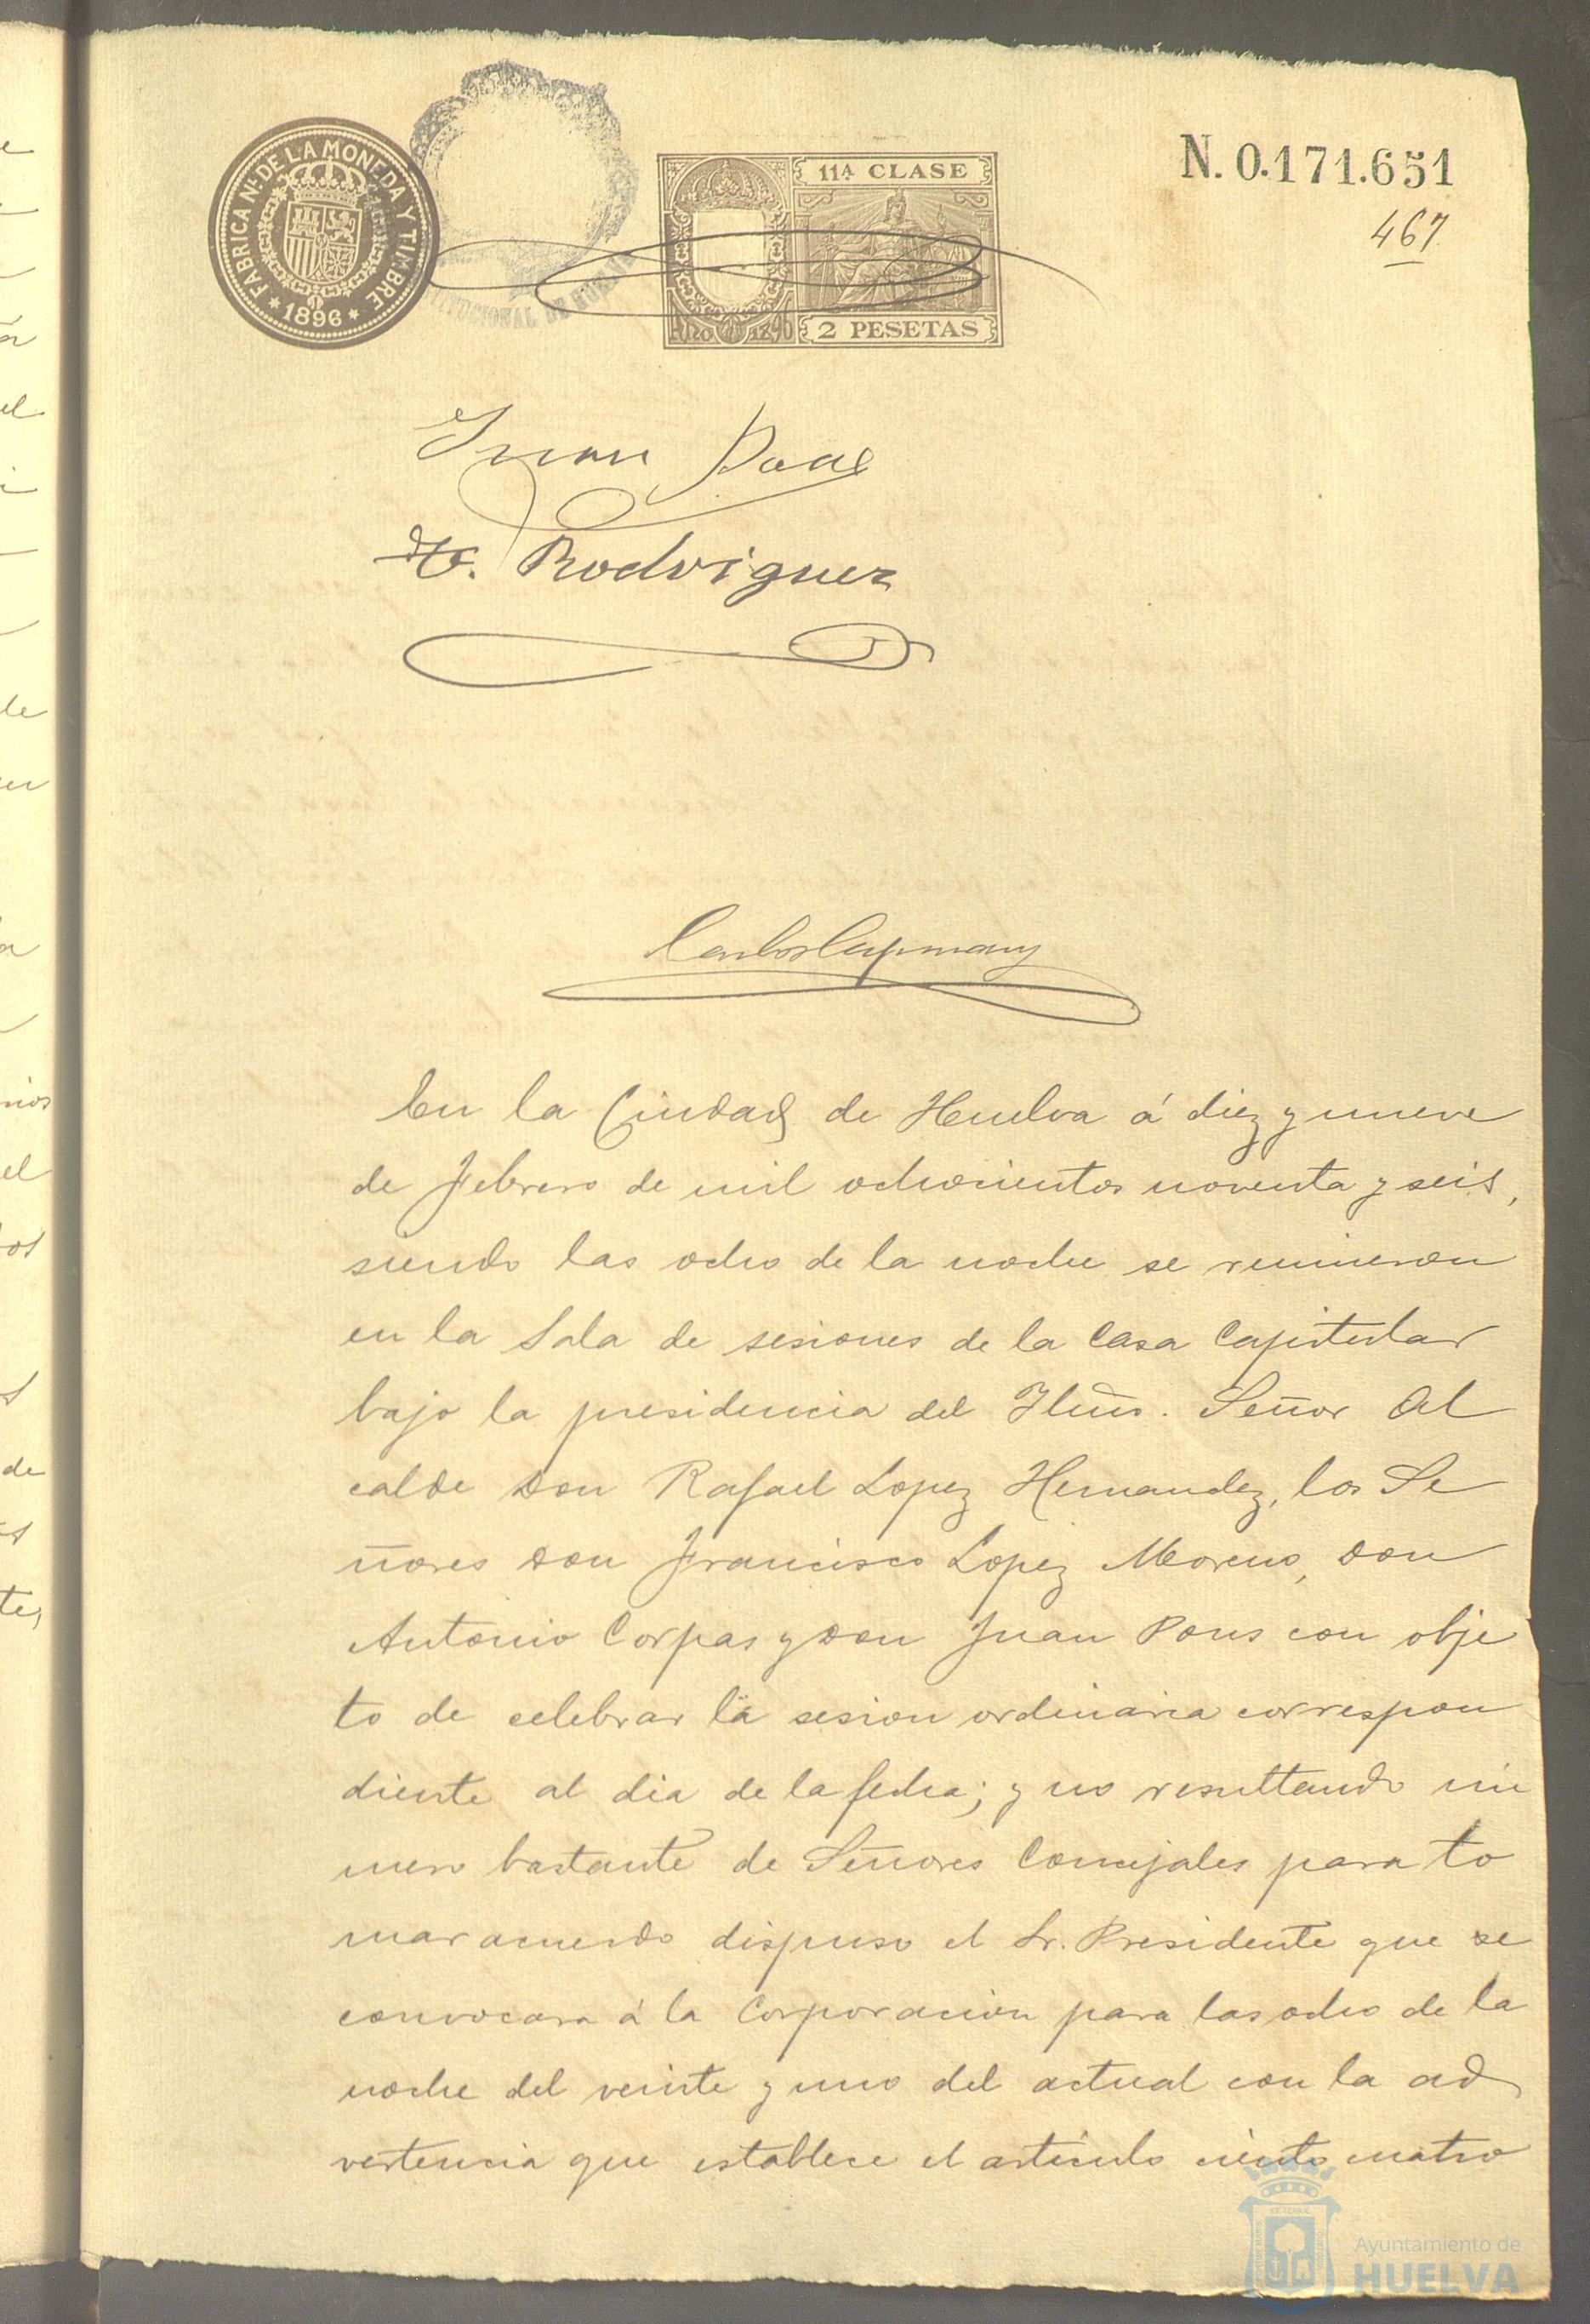 FABRICA NL. DE LA MONEDA Y TIMBRE
* 1896 *
11A CLASE
2 PESETAS
N. 0.171.651
467
Juan
Rodriguez
Carlos Capmany
En la Ciudad de Huelva á diez y nueve
de Febrero de mil ochocientos noventa y seis,
siendo las ocho de la noche se reunieron
en la Sala de sesiones de la Casa Capitular
bajo la presidencia del Iltmo. Señor Al
calde Don Rafael Lopez Hernandez, los Se
ñores Don Francisco Lopez Moreno, Don
Antonio Corpas y Don Juan Pons con obje
to de celebrar la sesion ordinaria correspon
diente al dia de la fecha; y no resultando nú
mero bastante de Señores Concejales para to
mar acuerdo dispuso el Sr. Presidente que se
convocara á la Corporación para las ocho de la
noche del veinte y uno del actual con la ad
vertencia que establece el artículo ciento cuatro
Ayuntamiento de
HUELVA